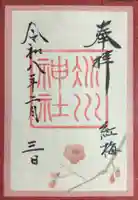 奉拝
紅梅
川
神社
令和 年二月三日